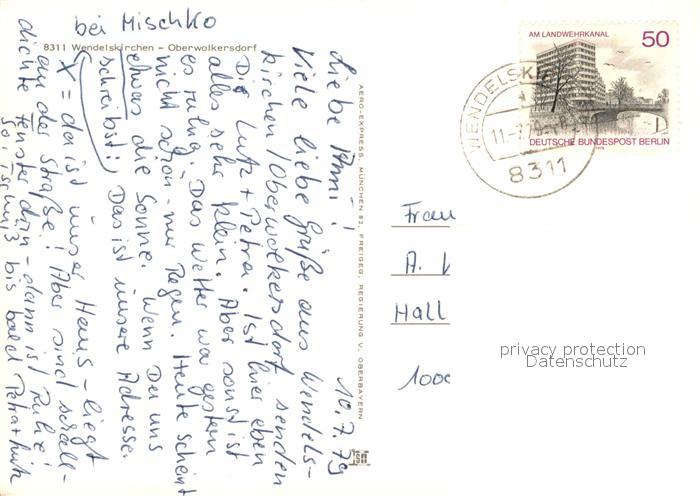 bei Mischko
8311 Wendelskirchen - Oberwolkersdorf
10.7.79
Liebe !
Viele liebe Grüße aus Wendels-
kirchen/Oberwolkersdorf senden
Dir Lutz + Petra. Ist hier eben
alles sehr klein. Aber sonst ist
es ruhig. Das Wetter war gestern
nicht schön - nur Regen. Heute scheint
etwas die Sonne. Wenn Du uns
schreibst: Das ist unsere Adresse.
X = da ist unser Haus - liegt
an der Straße! Aber sind schall-
dichte Fenster drin - dann ist Ruhe!
So, Tschüß bis bald Petra + Lutz
AERO-EXPRESS, MÜNCHEN 82, FREIGEG. REGIERUNG V. OBERBAYERN
AM LANDWEHRKANAL
50
DEUTSCHE BUNDESPOST BERLIN
WENDELSKI
11.-7.79
8311
Frau
A.
Hall
1000
privacy protection
Datenschutz